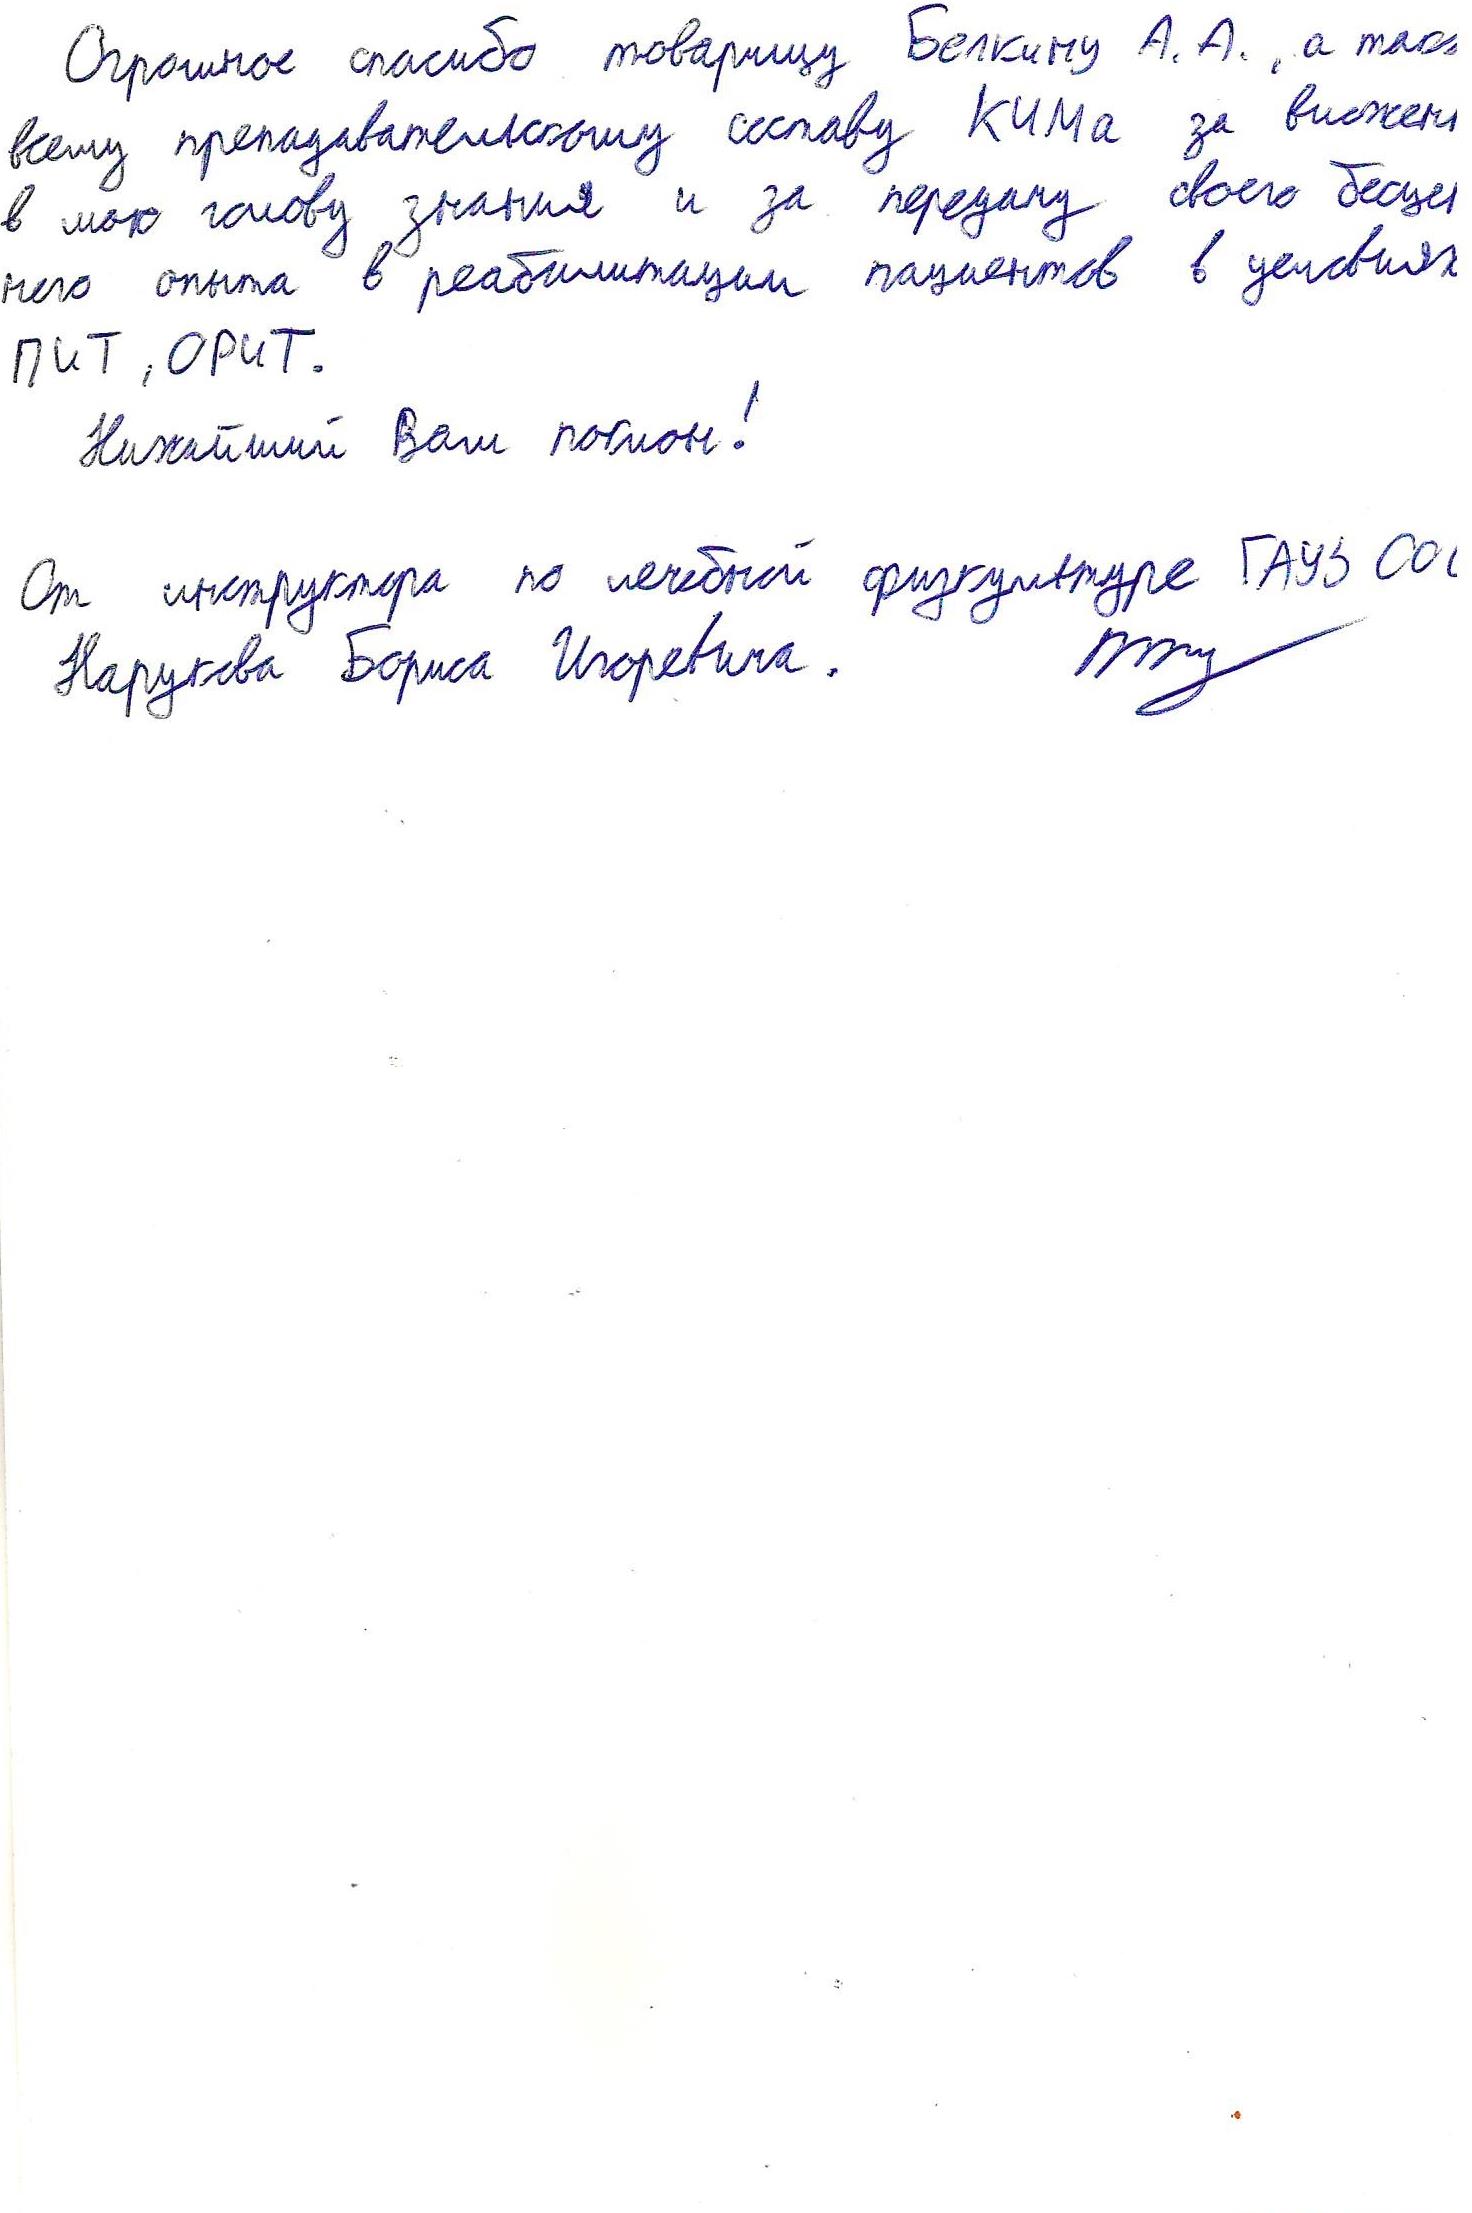 Огромное спасибо товарищу Белкину А.А., а такж
всему преподавательскому составу КИМа за вложен
в мою голову знания и за передачу своего бесцен
ного опыта в реабилитации пациентов в условиях
ПИТ, ОРИТ.
Нижайший Вам поклон!
От инструктора по лечебной физкультуре ГАУЗ СО
Нарукова Бориса Игоревича.